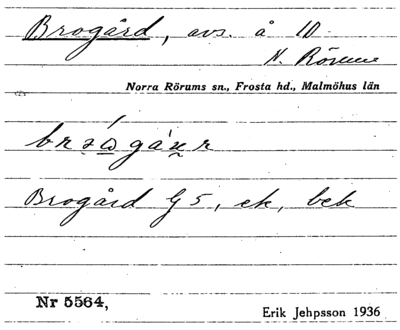 Brogård, avs. å 10
N. Rörum
Norra Rörums sn., Frosta hd., Malmöhus län
Brogård G 5, ek, bek
Nr 5564,
Erik Jehpsson 1936